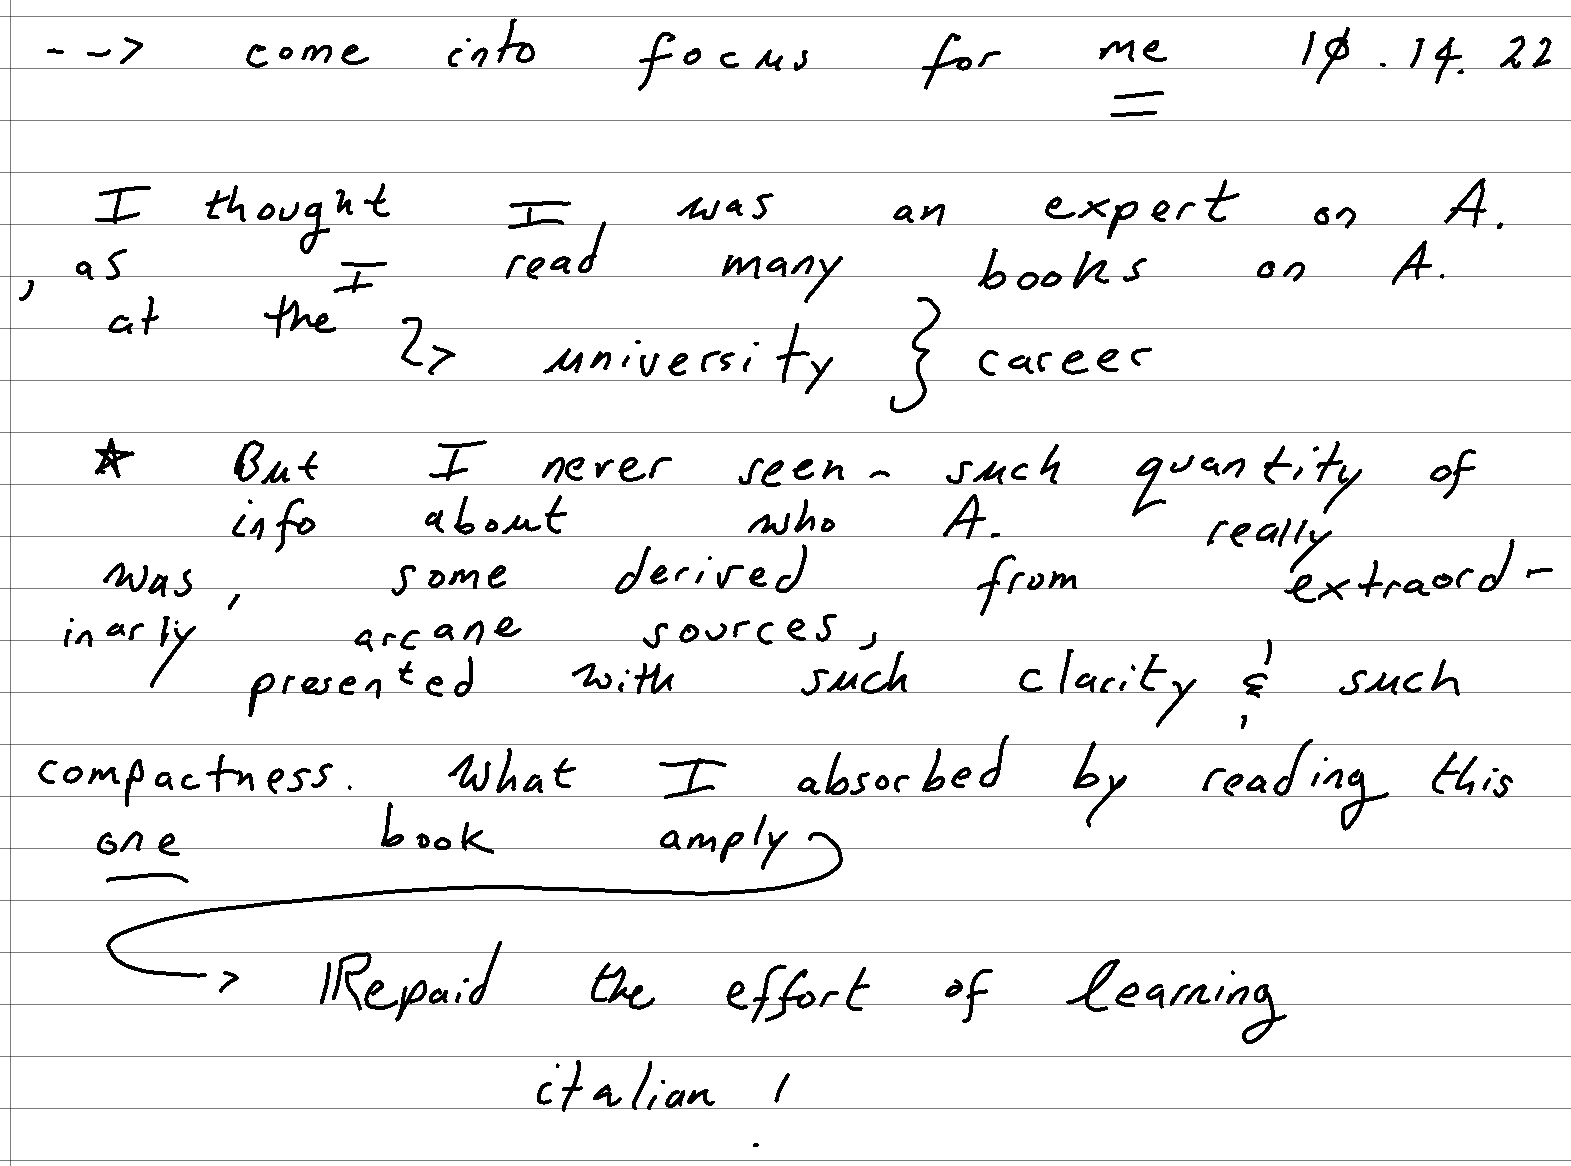 --> come into focus for me 10.14.22
I thought I was an expert on A.
, as I read many books on A.
at the
> university } career
★ But I never seen - such quantity of
info about who A. really
was, some derived from extraord-
inarly arcane sources,
presented with such clarity & such
compactness. What I absorbed by reading this
one book amply
> Repaid the effort of learning
italian !